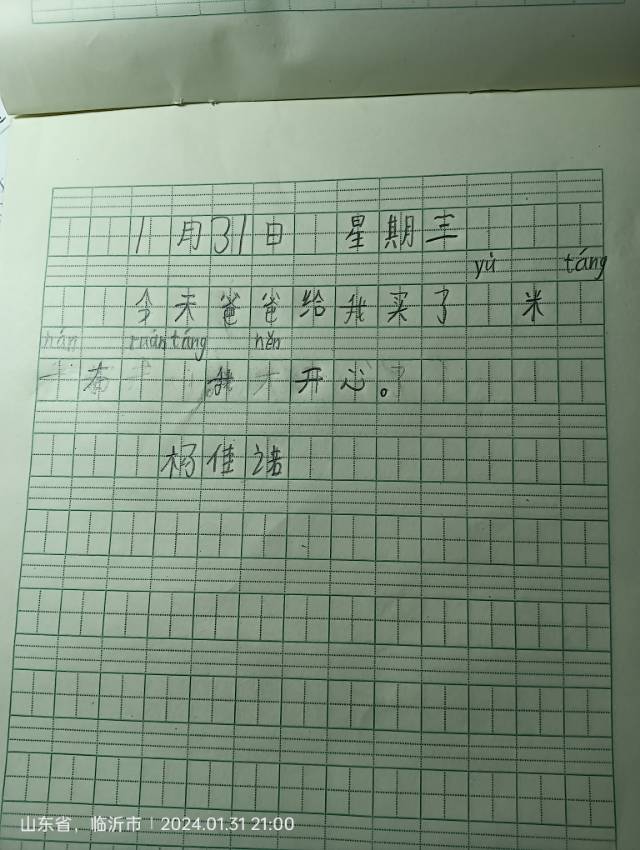 1月31日 星期三
yù táng
今天爸爸给我买了 米
ruán táng hěn
我 开心。
杨佳诺
山东省，临沂市 | 2024.01.31 21:00